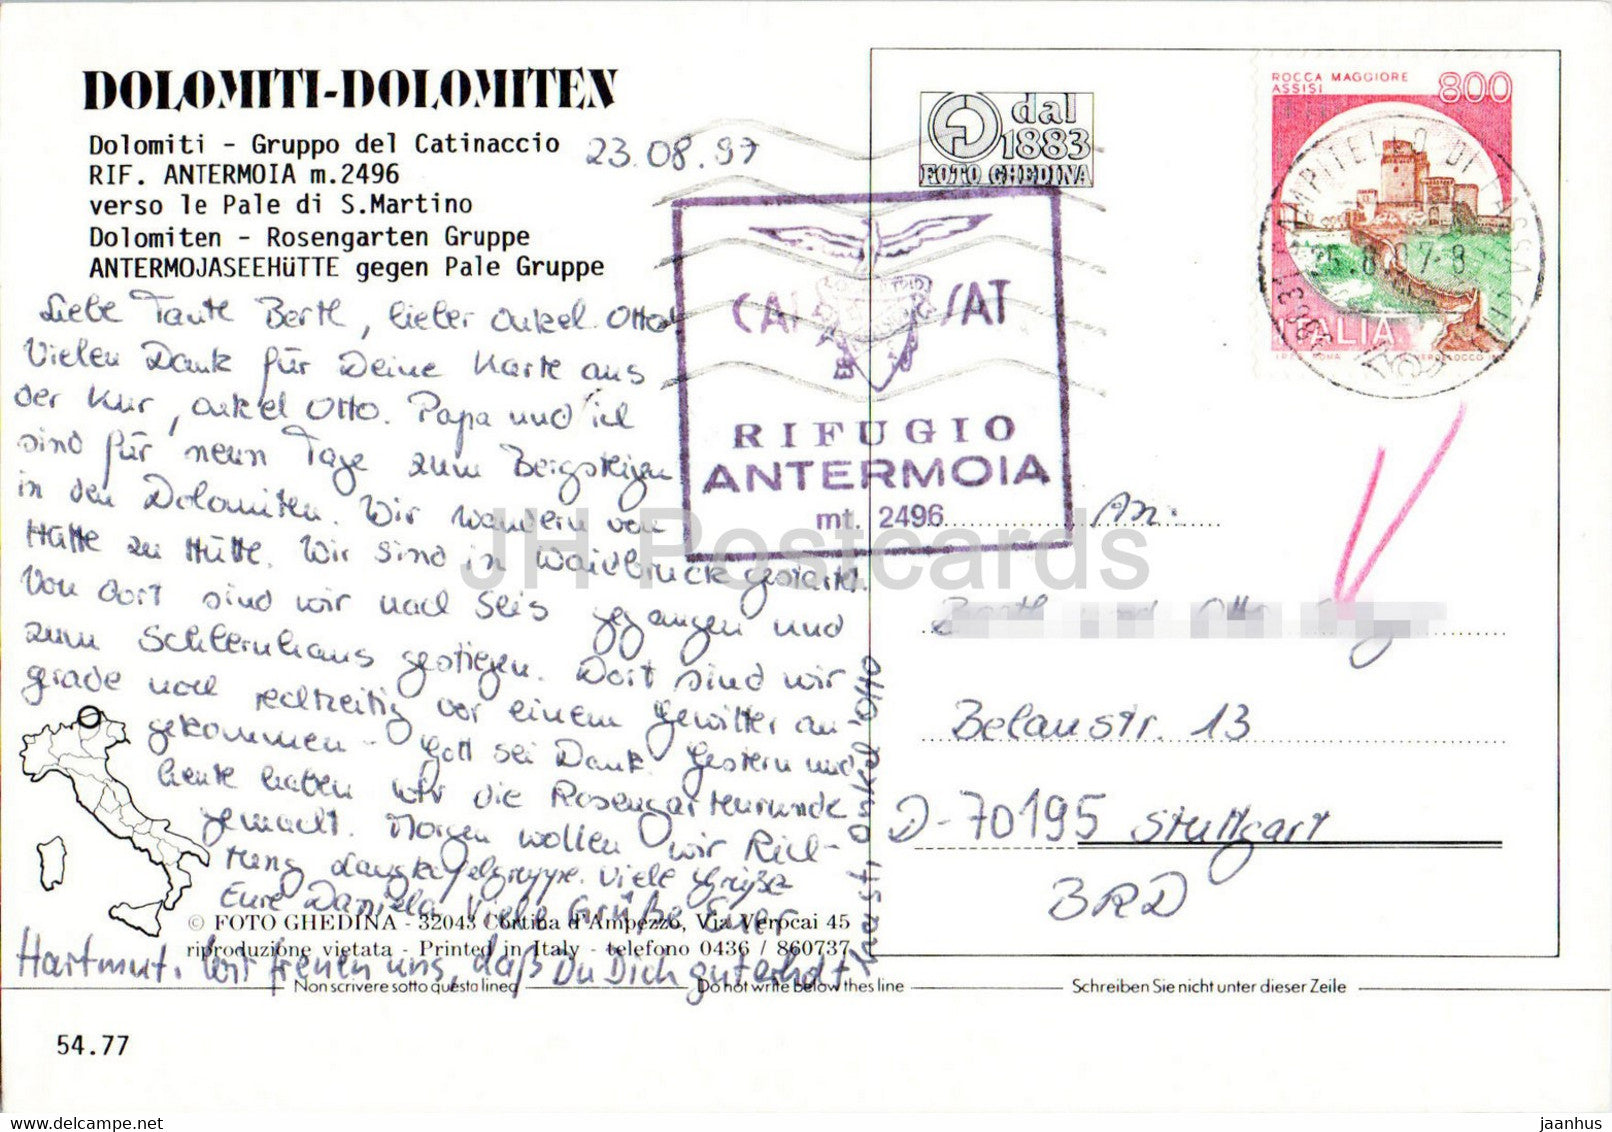 DOLOMITI-DOLOMITEN
Dolomiti - Gruppo del Catinaccio
RIF. ANTERMOIA m.2496
verso le Pale di S.Martino
Dolomiten - Rosengarten Gruppe
ANTERMOJASEEHüTTE gegen Pale Gruppe
23.08.97
Liebe Tante Bertl, lieber Onkel Otto!
Vielen Dank für Deine Karte aus
der Kur, Onkel Otto. Papa und ich
sind für neun Tage zum Bergsteigen
in den Dolomiten. Wir wandern von
Hütte zu Hütte. Wir sind in Waidbruck gestartet.
Von dort sind wir nach Seis gegangen und
zum Schlernhaus gestiegen. Dort sind wir
grade noch rechtzeitig vor einem Gewitter an
gekommen - Gott sei Dank. Gestern und
heute haben wir die Rosengartenrunde
gemacht. Morgen wollen wir Rich-
tung Langkofelgruppe. Viele Grüße
Eure Daniela. Viele Grüße Euer
Hartmut. Wir freuen uns, daß Du Dich gut erholt
hast, Onkel Otto
© FOTO GHEDINA - 32043 Cortina d'Ampezzo, Via Verocai 45
riproduzione vietata - Printed in Italy - telefono 0436 / 860737
Non scrivere sotto questa linea
Do not write below thes line
Schreiben Sie nicht unter dieser Zeile
54.77
dal
1883
FOTO GHEDINA
CAI SAT
RIFUGIO
ANTERMOIA
mt. 2496
ROCCA MAGGIORE
ASSISI
800
ITALIA
CAMPITELLO DI FASSA
25.8.97-8
An:
Bertl und Otto
Belaustr. 13
D-70195 Stuttgart
BRD
JH Postcards
www.delcampe.net
jaanhus